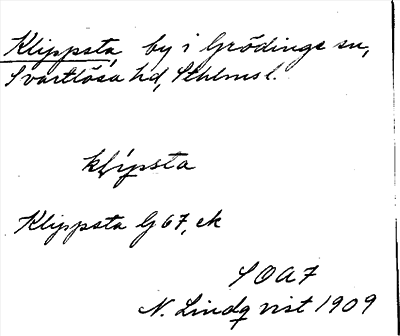 Klippsta, by i Grödinge sn,
Svartlösa hd, Sthlms l.
klípsta
Klippsta G 67, ek
SOAF
N. Lindqvist 1909